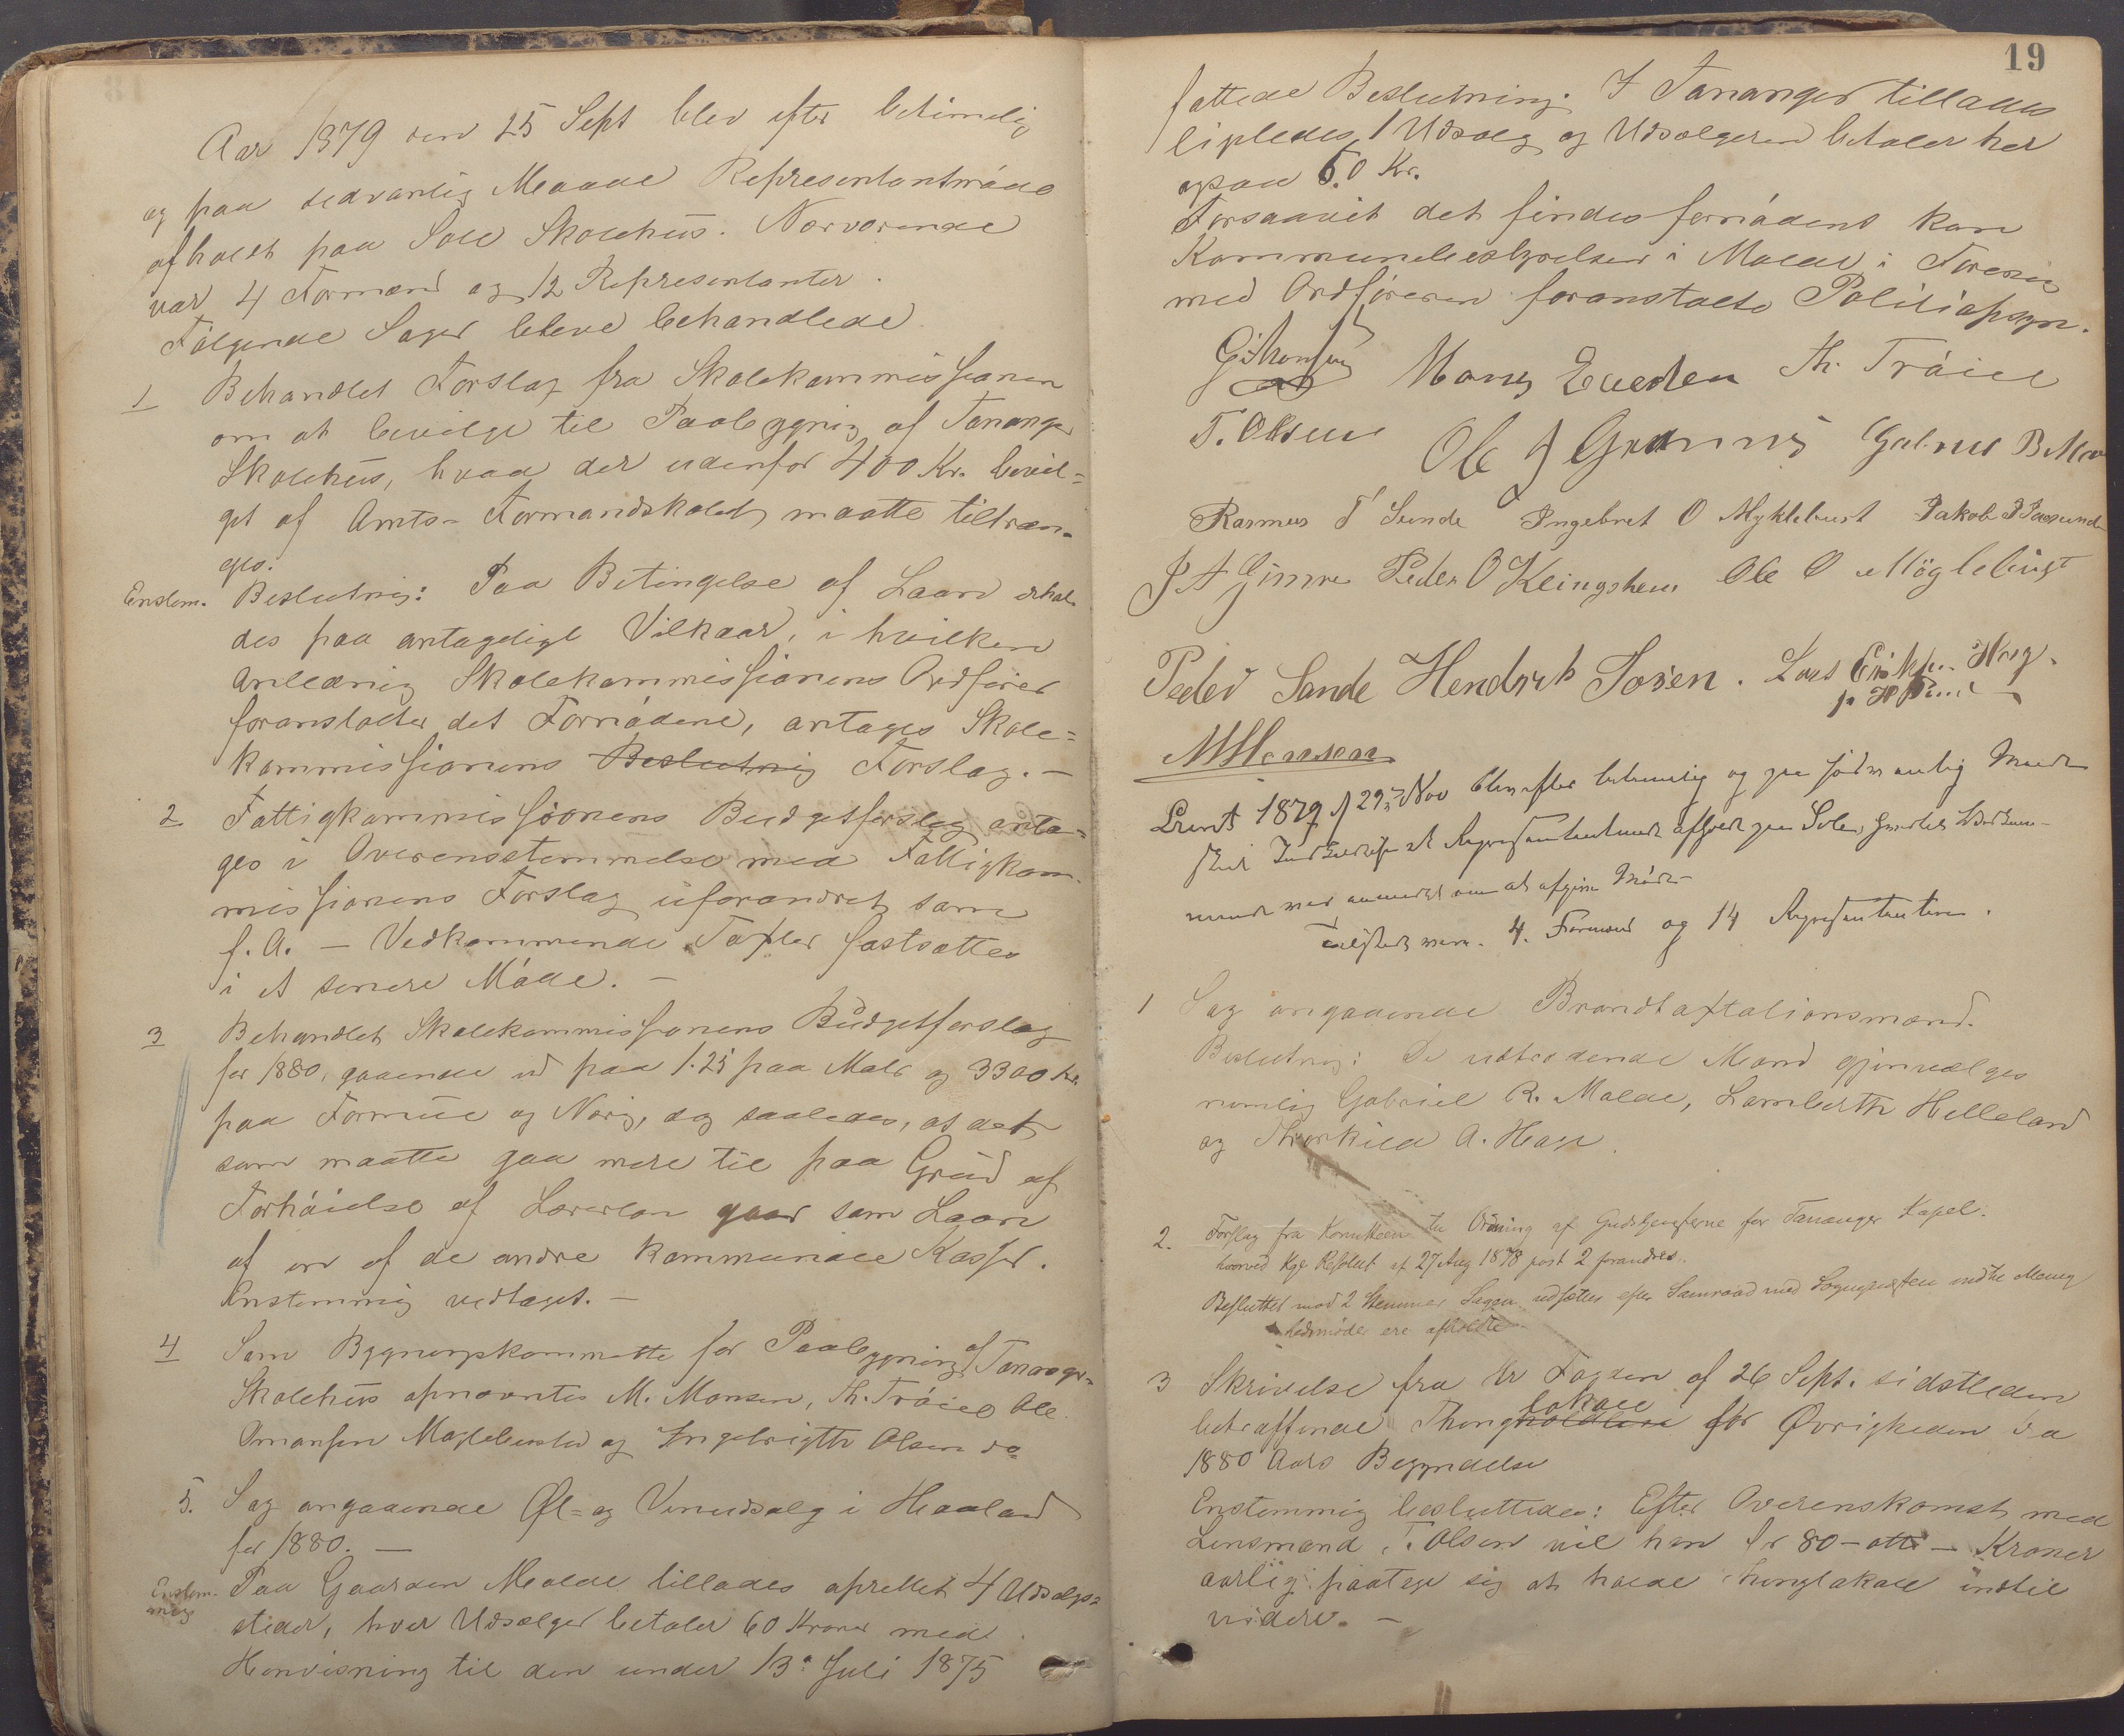 Aar 1879 den 25 Sept blev efter betimelig
og paa sedvanlig Maade Representantmøde
afholdt paa Sole Skolehus. Nærværende
var 4 Formænd og 12 Representanter.
Følgende Sager bleve behandlede
1 Behandlet Forslag fra Skolekommissionen
om at bevilge til Paabygning af Tananger
Skolehus, hvad der udenfor 400 Kr. bevil-
get af Amts-Formandskabet maatte tiltræn-
ges.
Enstem. Beslutning: Paa Betingelse af Laan erhol-
des paa antagelige Vilkaar, i hvilken
Anledning Skolekommissionens Ordfører
foranstalter det Fornødne, antages Skole-
kommissionens Beslutning Forslag. —
2 Fattigkommissionens Budgetforslag anta-
ges i Overensstemmelse med Fattigkom-
missionens Forslag uforandret som
f. A. — Vedkommende Taxter fastsættes
i et senere Møde. —
3 Behandlet Skolekommissionens Budgetforslag
for 1880, gaaende ud paa 1.25 paa Mark og 3300 Kr.
paa Formue og Næring, dog saaledes, at det
som maatte gaa mere til paa Grund af
Forhøielse af Lærerløn gaar som Laan
af en af de andre kommunale Kasser.
Enstemmig vedtaget. —
4 Som Bygningskommitte for Paabygning af Tananger
Skolehus opnævntes M. Monsen, Th. Trøien Ole
Omansen Myklebust og Ingebrigth Olsen do
5. Sag angaaende Øl- og Vinudsalg i Haaland
for 1880. —
Enstem-
mig Paa Gaarden Malde tillades oprettet 4 Udsalgs-
steder, hver Udsælger betaler 60 Kroner med
Henvisning til den under 13de Juli 1875
19
fattede Beslutning. I Tananger tillades
ligeledes 1 Udsalg og Udsælgeren betaler her
ogsaa 60 Kr.
Forsaavidt det findes fornødent kan
Kommunebestyrelsen i Malde i Forening
med Ordføreren foranstalte Politiopsyn.
Mons Th. Trøien
T. Olsen Ole J
Rasmus T Sunde Ingebret O Myklebust Jakob
J A Gimre Peder O Ole O Møglebust
Peder Sande Hendrik Sørensen. Lars
M Monsen
Aaret 1879 d 29de Nov blev efter betimelig og paa sædvanlig Maade
Tilstede vare 4 Formænd og 14 Repræsentantere.
1 Sag angaaende Brandtaxtationsmænd.
Beslutning: De udtrædende Mænd gjenvælges
nemlig Gabriel R. Malde, Lamberth Helleland
og Thorkild A. Haga.
2. Forslag fra Komiteen til Ordning af Gudstjenesterne for Tananger Kapel.
hvorved Kgl Resolut af 27 Aug 1878 post 2 forandres.
Besluttet mod 2 Stemmer Sagen udsættes efter Samraad med Sognepræsten indtil Menig
hedsmøder ere afholdte
3 Skrivelse fra Hr Fogden af 26 Sept. sidstleden
betræffende Thingholdere lokale for Øvrigheden fra
1880 Aars Begyndelse
Enstemmig besluttedes: Efter Overenskomst med
Lensmand T. Olsen vil han for 80 – otti – Kroner
aarlig paatage sig at holde Thinglokale indtil
videre. —